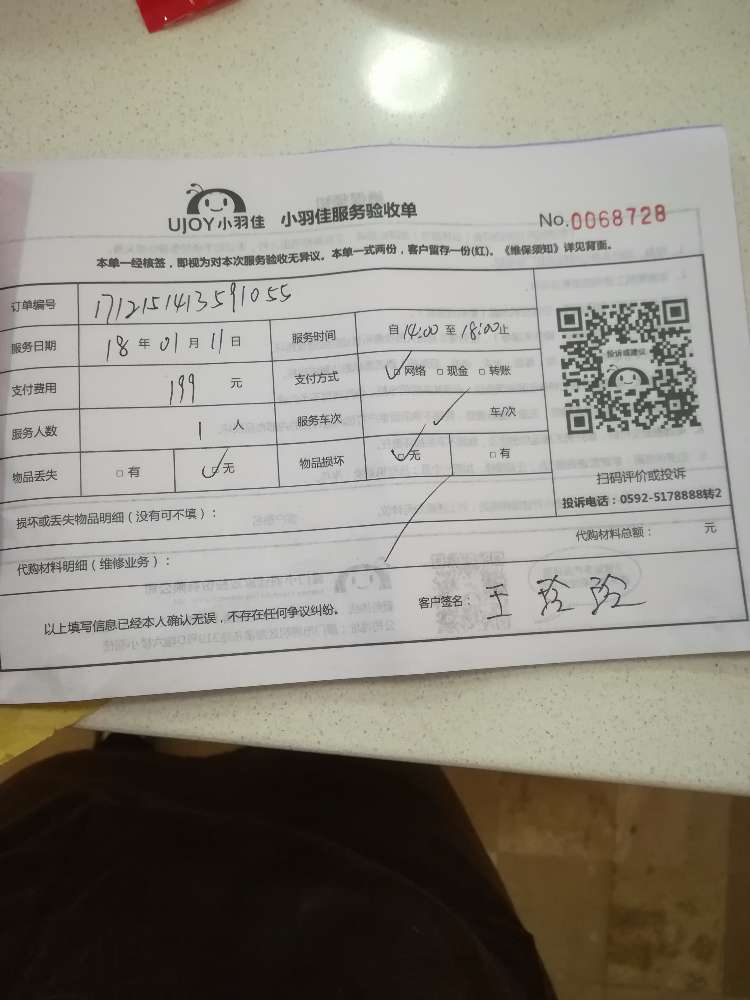 UJOY小羽佳 小羽佳服务验收单 No.0068728
本单一经核签，即视为对本次服务验收无异议。本单一式两份，客户留存一份(红)。《维保须知》详见背面。
订单编号 1712151413591055
服务日期 18 年 01 月 11 日 服务时间 自 14:00 至 18:00 止
支付费用 199 元 支付方式 □网络 □现金 □转账
服务人数 1 人 服务车次 车/次
物品丢失 □有 □无 物品损坏 □无 □有
投诉或建议
扫码评价或投诉
投诉电话：0592-5178888转2
损坏或丢失物品明细（没有可不填）：
代购材料明细（维修业务）： 代购材料总额： 元
以上填写信息已经本人确认无误，不存在任何争议纠纷。 客户签名：